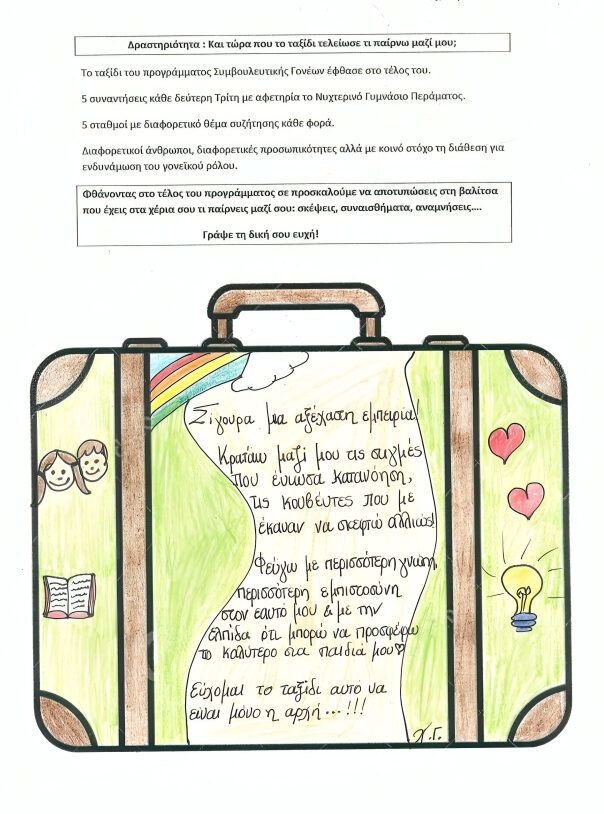 Δραστηριότητα : Και τώρα που το ταξίδι τελείωσε τι παίρνω μαζί μου;
Το ταξίδι του προγράμματος Συμβουλευτικής Γονέων έφθασε στο τέλος του.
5 συναντήσεις κάθε δεύτερη Τρίτη με αφετηρία το Νυχτερινό Γυμνάσιο Περάματος.
5 σταθμοί με διαφορετικό θέμα συζήτησης κάθε φορά.
Διαφορετικοί άνθρωποι, διαφορετικές προσωπικότητες αλλά με κοινό στόχο τη διάθεση για
ενδυνάμωση του γονεϊκού ρόλου.
Φθάνοντας στο τέλος του προγράμματος σε προσκαλούμε να αποτυπώσεις στη βαλίτσα
που έχεις στα χέρια σου τι παίρνεις μαζί σου: σκέψεις, συναισθήματα, αναμνήσεις....
Γράψε τη δική σου ευχή!
Σίγουρα μια αξέχαστη εμπειρία!
Κρατάω μαζί μου τις στιγμές
που ένιωσα κατανόηση,
τις κουβέντες που με
έκαναν να σκεφτώ αλλιώς!
Φεύγω με περισσότερη γνώση,
περισσότερη εμπιστοσύνη
στον εαυτό μου & με την
ελπίδα ότι μπορώ να προσφέρω
το καλύτερο στα παιδιά μου♡
Εύχομαι το ταξίδι αυτό να
είναι μόνο η αρχή...!!!
Χ.Γ.